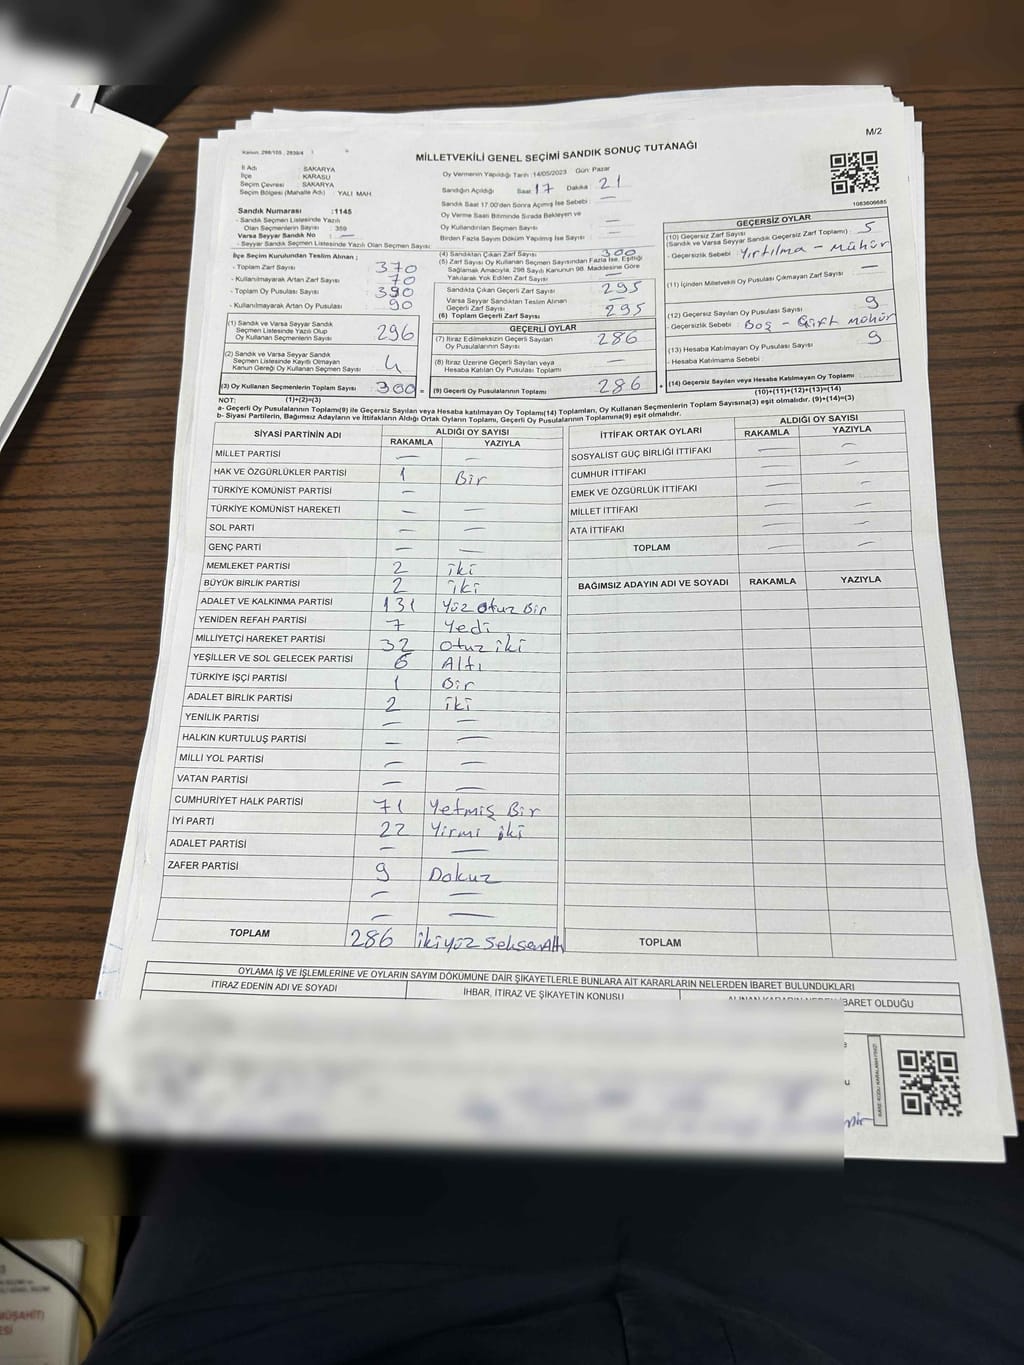 Kanun: 298/105 , 2839/4
M/2
MİLLETVEKİLİ GENEL SEÇİMİ SANDIK SONUÇ TUTANAĞI
İl Adı : SAKARYA
İlçe : KARASU
Seçim Çevresi : SAKARYA
Seçim Bölgesi (Mahalle Adı) : YALI MAH.
Oy Vermenin Yapıldığı Tarih :14/05/2023 Gün: Pazar
Sandığın Açıldığı Saat 17 Dakika 21
Sandık Saat 17:00'den Sonra Açılmış İse Sebebi : —
Oy Verme Saati Bitiminde Sırada Bekleyen ve
Oy Kullandırılan Seçmen Sayısı : —
Birden Fazla Sayım Döküm Yapılmış İse Sayısı : —
1083606685
Sandık Numarası :1145
- Sandık Seçmen Listesinde Yazılı
Olan Seçmenlerin Sayısı : 359
Varsa Seyyar Sandık No : —
- Seyyar Sandık Seçmen Listesinde Yazılı Olan Seçmen Sayısı:
İlçe Seçim Kurulundan Teslim Alınan ;
- Toplam Zarf Sayısı : 370
- Kullanılmayarak Artan Zarf Sayısı : 70
- Toplam Oy Pusulası Sayısı : 390
- Kullanılmayarak Artan Oy Pusulası : 90
(1) Sandık ve Varsa Seyyar Sandık
Seçmen Listesinde Yazılı Olup
Oy Kullanan Seçmenlerin Sayısı : 296
(2) Sandık ve Varsa Seyyar Sandık
Seçmen Listesinde Kayıtlı Olmayan
Kanun Gereği Oy Kullanan Seçmen Sayısı : 4
(3) Oy Kullanan Seçmenlerin Toplam Sayısı : 300 =
(4) Sandıktan Çıkan Zarf Sayısı : 300
(5) Zarf Sayısı Oy Kullanan Seçmen Sayısından Fazla İse, Eşitliği
Sağlamak Amacıyla, 298 Sayılı Kanunun 98. Maddesine Göre
Yakılarak Yok Edilen Zarf Sayısı : —
Sandıkta Çıkan Geçerli Zarf Sayısı : 295
Varsa Seyyar Sandıktan Teslim Alınan
Geçerli Zarf Sayısı : —
(6) Toplam Geçerli Zarf Sayısı : 295
GEÇERLİ OYLAR
(7) İtiraz Edilmeksizin Geçerli Sayılan
Oy Pusulalarının Sayısı : 286
(8) İtiraz Üzerine Geçerli Sayılan veya
Hesaba Katılan Oy Pusulası Toplamı : —
(9) Geçerli Oy Pusulalarının Toplamı : 286 +
GEÇERSİZ OYLAR
(10) Geçersiz Zarf Sayısı
(Sandık ve Varsa Seyyar Sandık Geçersiz Zarf Toplamı) : 5
- Geçersizlik Sebebi : Yırtılma - Mühür
(11) İçinden Milletvekili Oy Pusulası Çıkmayan Zarf Sayısı : —
(12) Geçersiz Sayılan Oy Pusulası Sayısı : 9
- Geçersizlik Sebebi : Boş - Çift mühür
(13) Hesaba Katılmayan Oy Pusulası Sayısı : 9
Hesaba Katılmama Sebebi :
(14) Geçersiz Sayılan veya Hesaba Katılmayan Oy Toplamı :
(10)+(11)+(12)+(13)=(14)
NOT: (1)+(2)=(3)
a- Geçerli Oy Pusulalarının Toplamı(9) ile Geçersiz Sayılan veya Hesaba katılmayan Oy Toplamı(14) Toplamları, Oy Kullanan Seçmenlerin Toplam Sayısına(3) eşit olmalıdır. (9)+(14)=(3)
b- Siyasi Partilerin, Bağımsız Adayların ve İttifakların Aldığı Ortak Oyların Toplamı, Geçerli Oy Pusulalarının Toplamına(9) eşit olmalıdır.
SİYASİ PARTİNİN ADI ALDIĞI OY SAYISI
RAKAMLA YAZIYLA
MİLLET PARTİSİ — —
HAK VE ÖZGÜRLÜKLER PARTİSİ 1 Bir
TÜRKİYE KOMÜNİST PARTİSİ —
TÜRKİYE KOMÜNİST HAREKETİ — —
SOL PARTİ — —
GENÇ PARTİ — —
MEMLEKET PARTİSİ 2 iki
BÜYÜK BİRLİK PARTİSİ 2 iki
ADALET VE KALKINMA PARTİSİ 131 Yüz otuz Bir
YENİDEN REFAH PARTİSİ 7 Yedi
MİLLİYETÇİ HAREKET PARTİSİ 32 otuz iki
YEŞİLLER VE SOL GELECEK PARTİSİ 6 Altı
TÜRKİYE İŞÇİ PARTİSİ 1 Bir
ADALET BİRLİK PARTİSİ 2 iki
YENİLİK PARTİSİ — —
HALKIN KURTULUŞ PARTİSİ — —
MİLLİ YOL PARTİSİ — —
VATAN PARTİSİ — —
CUMHURİYET HALK PARTİSİ 71 Yetmiş Bir
İYİ PARTİ 22 Yirmi iki
ADALET PARTİSİ — —
ZAFER PARTİSİ 9 Dokuz
— —
— —
TOPLAM 286 ikiyüz SeksenAltı
İTTİFAK ORTAK OYLARI ALDIĞI OY SAYISI
RAKAMLA YAZIYLA
SOSYALİST GÜÇ BİRLİĞİ İTTİFAKI — —
CUMHUR İTTİFAKI — —
EMEK VE ÖZGÜRLÜK İTTİFAKI — —
MİLLET İTTİFAKI — —
ATA İTTİFAKI — —
TOPLAM — —
BAĞIMSIZ ADAYIN ADI VE SOYADI RAKAMLA YAZIYLA
TOPLAM
OYLAMA İŞ VE İŞLEMLERİNE VE OYLARIN SAYIM DÖKÜMÜNE DAİR ŞİKAYETLERLE BUNLARA AİT KARARLARIN NELERDEN İBARET BULUNDUKLARI
İTİRAZ EDENİN ADI VE SOYADI İHBAR, İTİRAZ VE ŞİKAYETİN KONUSU ALINAN KARARIN NEDEN İBARET OLDUĞU
C
MÜŞAHİT)